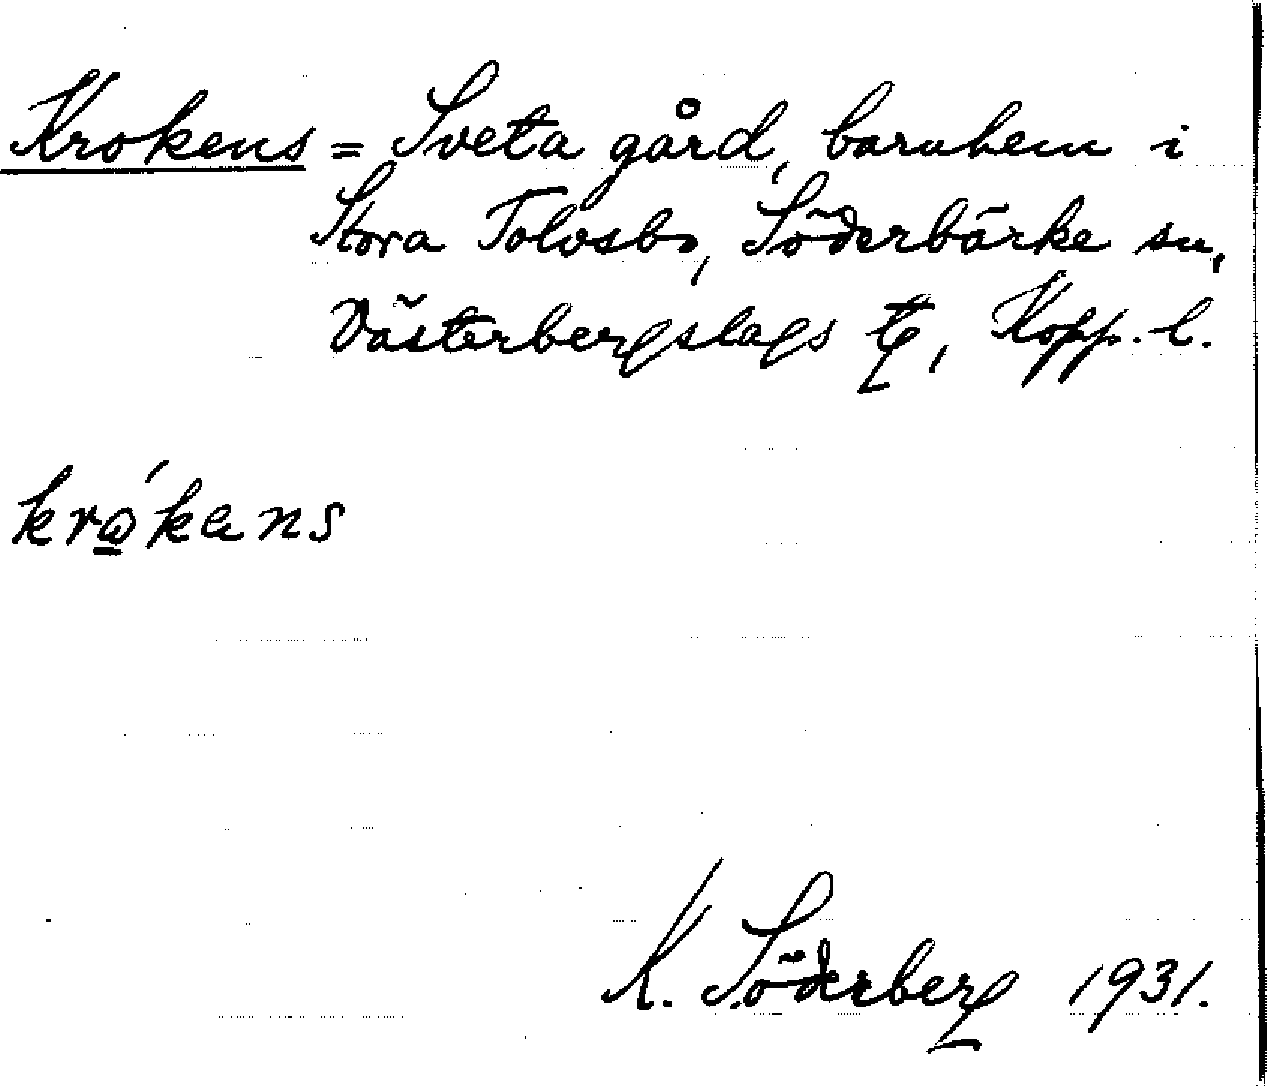 Krokens = Sveta gård, barnhem i
Stora Tolvsbo, Söderbärke sn,
Västerbergslags tg, Kopp. l.
krá̲kans
K. Söderberg 1931.